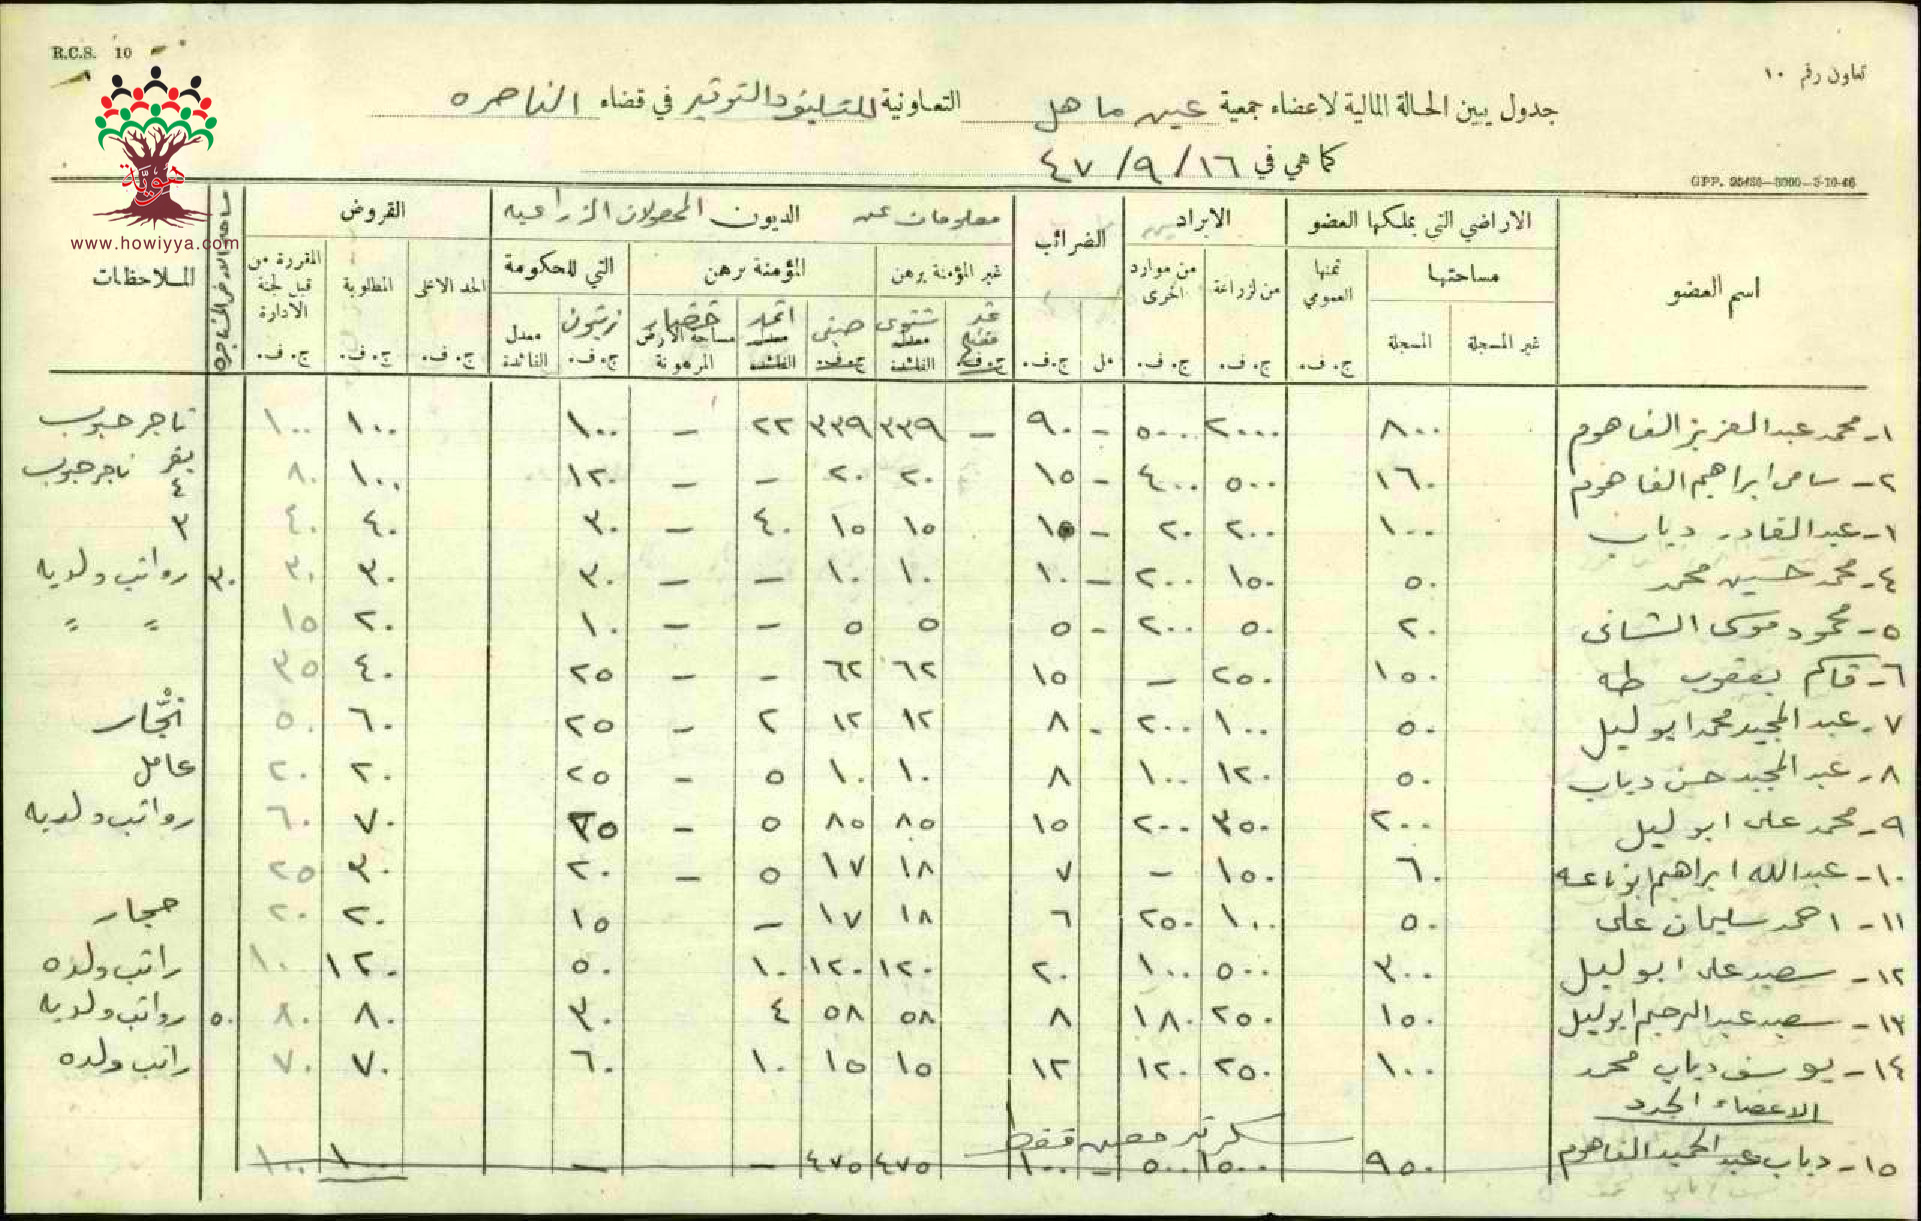 R.C.S. 10
تعاون رقم ١٠
جدول يبين الحالة المالية لاعضاء جمعية عين ماهل التعاونية للتسليف والتوفير في قضاء الناصره
كما هي في ١٦/٩/٤٧
GPP. 25456—3000—5-10-46
هوية
www.howiyya.com
اسم العضو الاراضي التي يملكها العضو الايراد الضرائب معلومات عن الديون المحصولات الزراعيه القروض الملاحظات
مساحتها ثمنها العمومي من لزراعة من موارد اخرى غير المؤمنة برهن المؤمنة برهن التي للحكومة الحد الاعلى المطلوبة المقررة من قبل لجنة الادارة
غير المسجلة المسجلة ج. ف. ج. ف. ج. ف. مل ج.ف. ج.ف. شتوي معدل الفائدة صيفي ج.ف. معدل الفائدة خضار مساحة الارض المرهونة زيتون ج. ف. معدل الفائدة ج. ف. ج. ف. ج. ف.
١- محمد عبد العزيز الفاهوم ٨٠٠ ٢٠٠٠ ٥٠٠ - ٩٠ - ٣٣٩ ٣٣٩ ٢٢ - ١٠٠ ١٠٠ ١٠٠ تاجر حبوب
٢- سامي ابراهيم الفاهوم ١٦٠ ٥٠٠ ٤٠٠ - ١٥ ٢٠ ٢٠ - - ١٢٠ ١٠٠ ٨٠ تاجر حبوب
١- عبد القادر دياب ١٠٠ ٢٠٠ ٢٠ - ١٥ ١٥ ١٥ ٤٠ - ٣٠ ٤٠ ٤٠ ٣
٤- محمد حسين محمد ٥٠ ١٥٠ ٢٠٠ - ١٠ ١٠ ١٠ - - ٣٠ ٣٠ ٣٠ ٣٠ رواتب ولديه
٥- محمود موسى الشاني ٢٠ ٥٠ ٢٠٠ - ٥ ٥ ٥ - - ١٠ ٢٠ ١٥ " "
٦- قاسم يعقوب طه ١٥٠ ٢٥٠ - ١٥ ٦٢ ٦٢ - - ٢٥ ٤٠ ٣٥
٧- عبد المجيد محمد ابو ليل ٥٠ ١٠٠ ٢٠٠ - ٨ ١٢ ١٢ ٢ - ٢٥ ٦٠ ٥٠ نجّار
٨- عبد المجيد حسن دياب ٥٠ ١٢٠ ١٠٠ ٨ ١٠ ١٠ ٥ - ٢٥ ٢٠ ٢٠ عامل
٩- محمد علي ابو ليل ٢٠٠ ٣٥٠ ٢٠٠ ١٥ ٨٥ ٨٥ ٥ - ٢٥ ٧٠ ٦٠ رواتب ولديه
١٠- عبدالله ابراهيم ٦٠ ١٥٠ - ٧ ١٨ ١٧ ٥ - ٢٠ ٣٠ ٢٥
١١- احمد سليمان علي ٥٠ ١٠٠ ٢٥٠ ٦ ١٨ ١٧ - ١٥ ٢٠ ٢٠ حجار
١٢- سعيد علي ابو ليل ٣٠٠ ٥٠٠ ١٠٠ ٢٠ ١٢٠ ١٢٠ ١٠ ٥٠ ١٢٠ ١٠٠ راتب ولده
١٣- سعيد عبد الرحيم ابو ليل ١٥٠ ٢٥٠ ١٨٠ ٨ ٥٨ ٥٨ ٤ ٣٠ ٨٠ ٨٠ ٥٠ رواتب ولديه
١٤- يوسف دياب محمد ١٠٠ ٢٥٠ ١٢٠ ١٢ ١٥ ١٥ ١٠ ٦٠ ٧٠ ٧٠ راتب ولده
الاعضاء الجدد
سكرتير فقط
١٥- دياب عبد الحميد الفاهوم ٩٥٠ ١٥٠٠ ٥٠٠ - ١٠٠ ٤٧٥ ٤٧٥ - - ١٠٠ ١٠٠